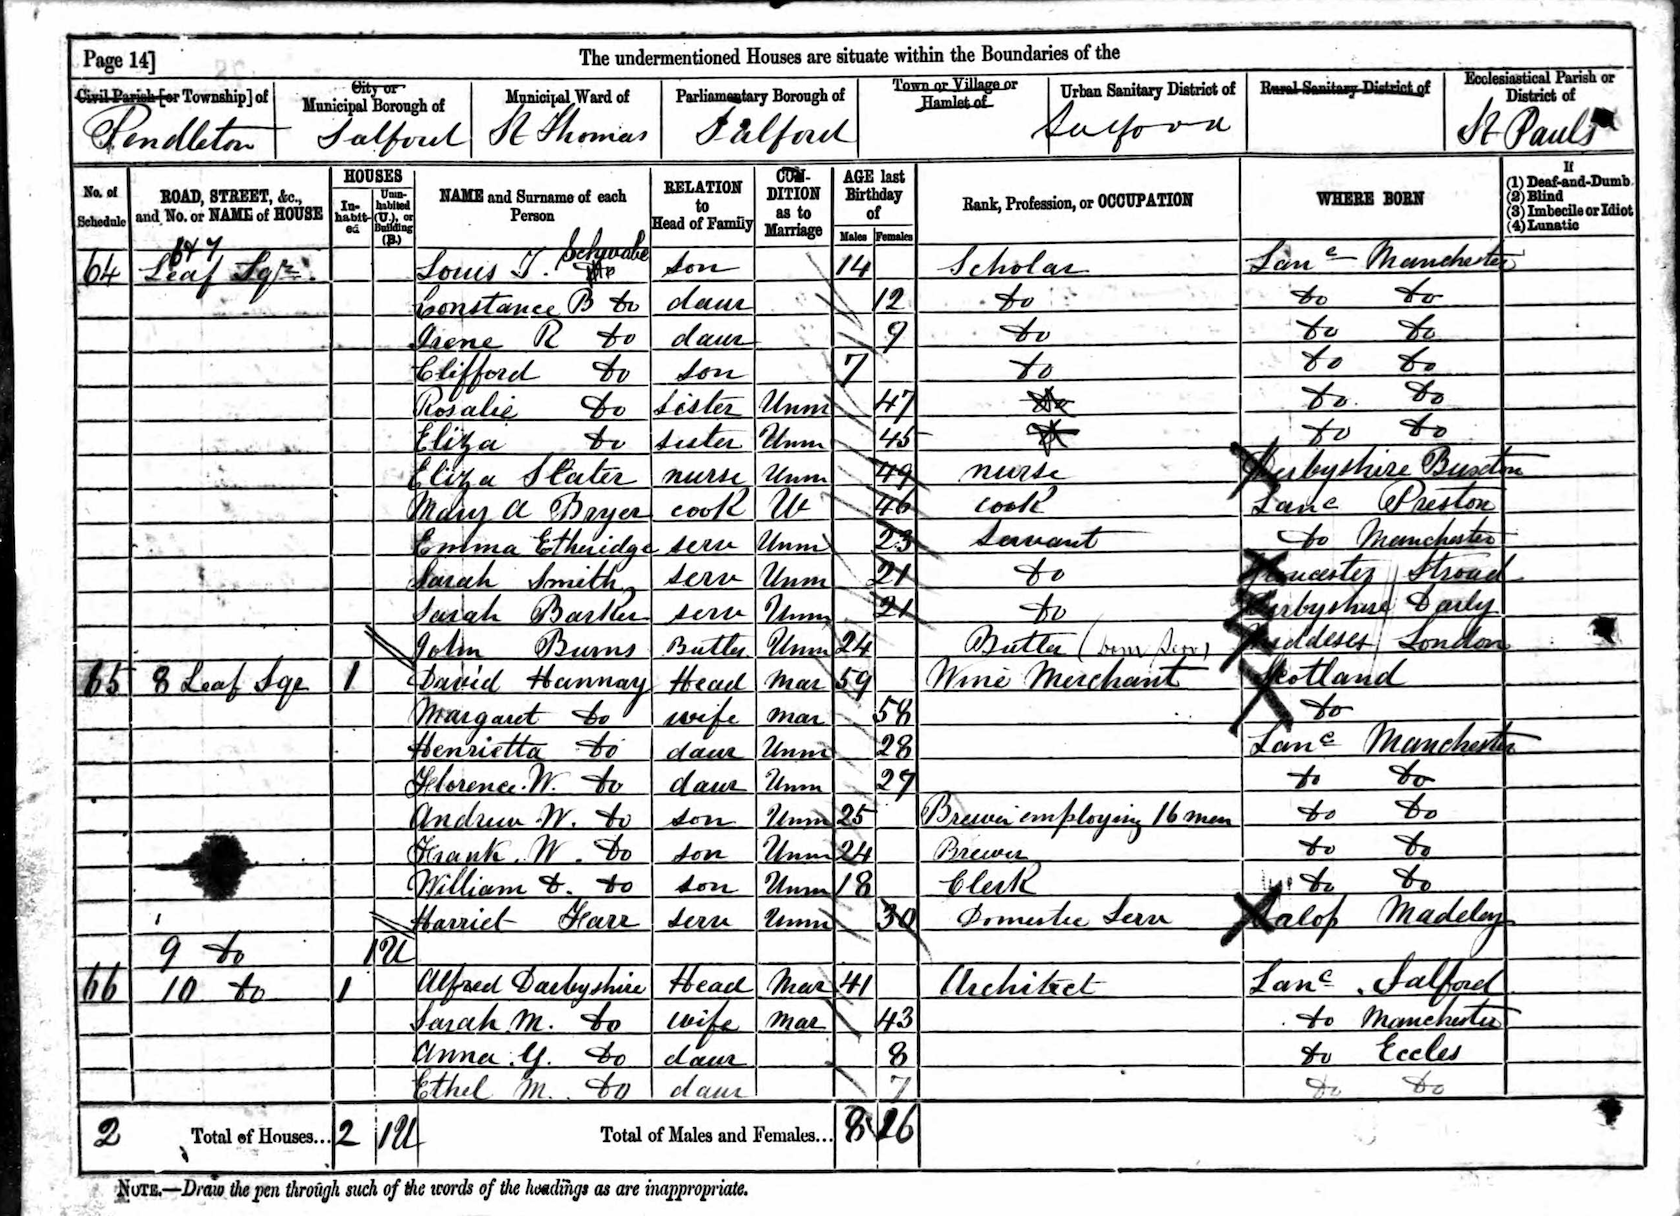 Page 14]
The undermentioned Houses are situate within the Boundaries of the
Civil Parish [or Township] of
City or Municipal Borough of
Municipal Ward of
Parliamentary Borough of
Town or Village or Hamlet of
Urban Sanitary District of
Rural Sanitary District of
Ecclesiastical Parish or District of
Pendleton Salford St Thomas Salford Salford St Pauls
No. of Schedule
ROAD, STREET, &c., and No. or NAME of HOUSE
HOUSES
In-habit-ed
Unin-habited (U.), or Building (B.)
NAME and Surname of each Person
RELATION to Head of Family
CON-DITION as to Marriage
AGE last Birthday of
Males Females
Rank, Profession, or OCCUPATION
WHERE BORN
If
(1) Deaf-and-Dumb
(2) Blind
(3) Imbecile or Idiot
(4) Lunatic
64 6 & 7 Leaf Sqre Louis T. Schwabe son 14 Scholar Lanc Manchester
Constance B do daur 12 do do do
Irene R do daur 9 do do do
Clifford do son 7 do do do
Rosalie do sister Unm 47 do do
Eliza do sister Unm 45 do do
Eliza Slater nurse Unm 49 nurse Derbyshire Buxton
Mary A Bryer cook W 46 cook Lanc Preston
Emma Etheridge serv Unm 23 Servant do Manchester
Sarah Smith serv Unm 21 do Gloucester Stroud
Sarah Barker serv Unm 21 do Derbyshire Darly
John Burns Butler Unm 24 Butler (Dom Serv) Middesex London
65 8 Leaf Sqe 1 David Hannay Head Mar 59 Wine Merchant Scotland
Margaret do wife mar 58 do
Henrietta do daur Unm 28 Lanc Manchester
Florence W. do daur Unm 27 do do
Andrew W. do son Unm 25 Brewer employing 16 men do do
Frank W. do son Unm 24 Brewer do do
William D. do son Unm 18 Clerk do do
Harriet Farr serv Unm 30 Domestic Serv Salop Madeley
9 do 1U
66 10 do 1 Alfred Darbyshire Head Mar 41 Architect Lanc Salford
Sarah M. do wife mar 43 do Manchester
Anna Y. do daur 8 do Eccles
Ethel M. do daur 7 do do
2 Total of Houses... 2 1U Total of Males and Females... 8 16
NOTE.—Draw the pen through such of the words of the headings as are inappropriate.